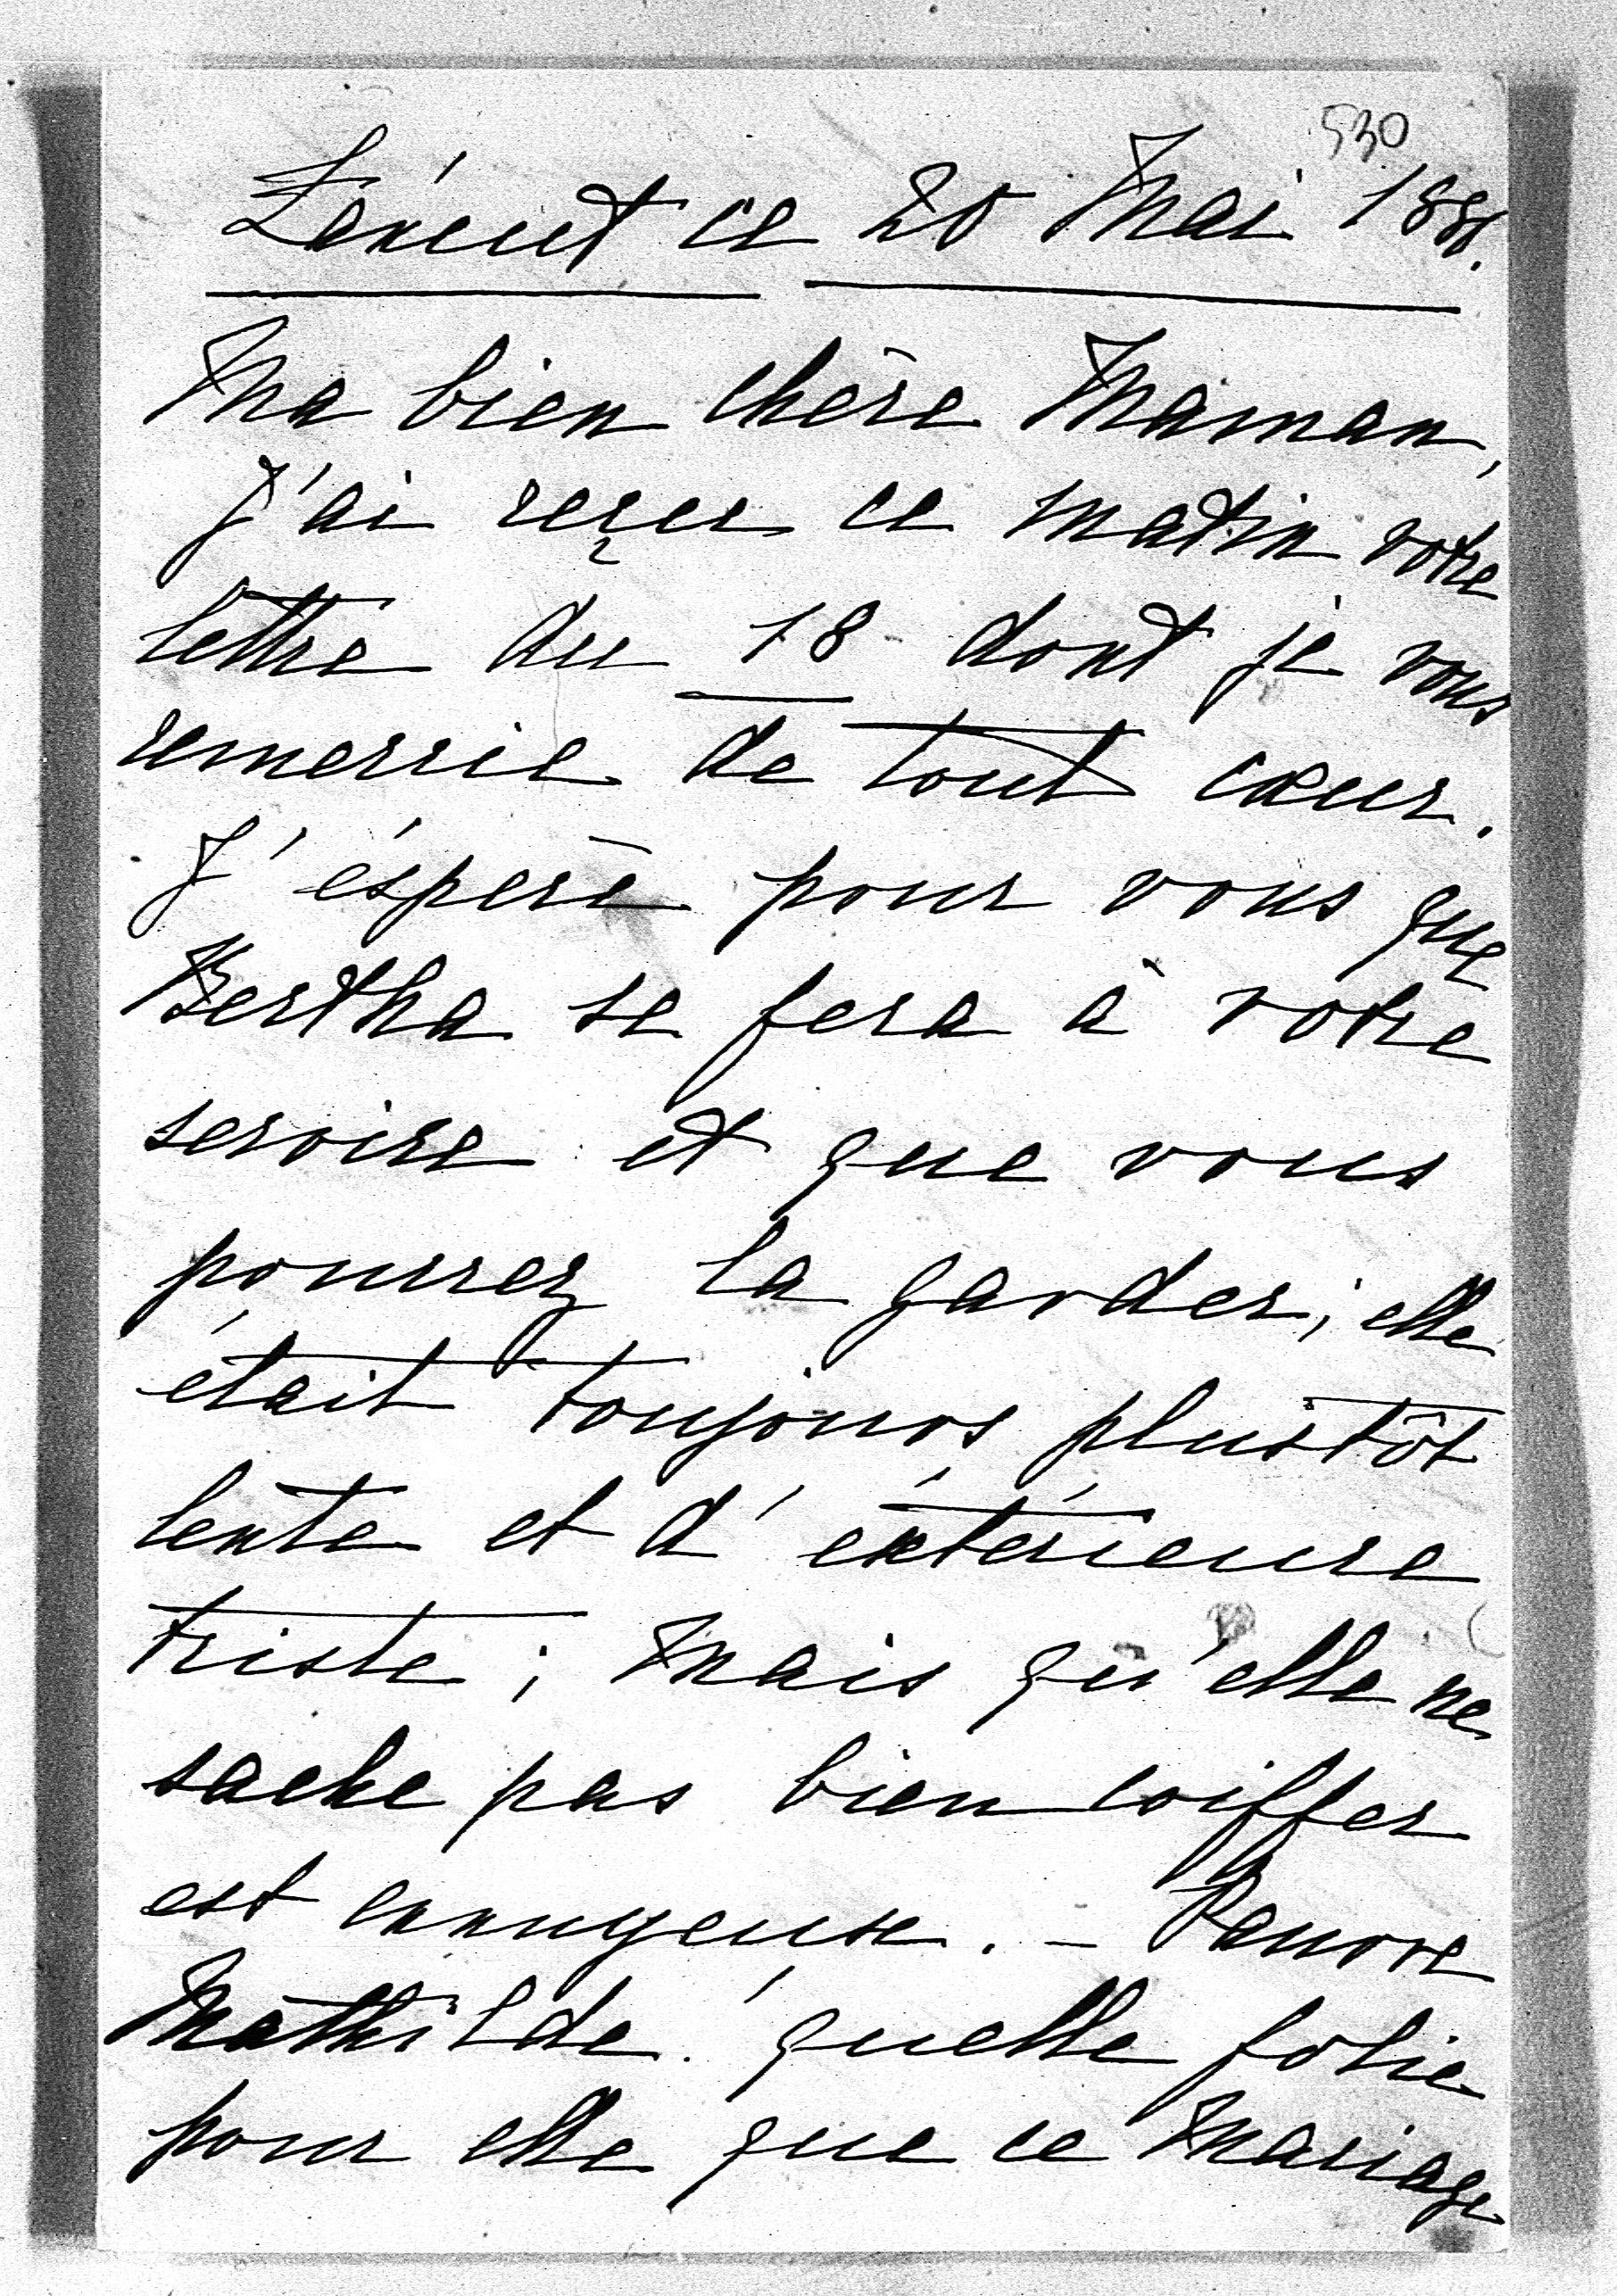 530
Lexcut ce 20 Mai 1888.
Ma bien chère Maman,
J'ai reçue ce matin votre
lettre du 18 dont je vous
remercie de tout cœur.
J'éspère pour vous que
Bertha se fera à votre
service et que vous
pourrez la garder; elle
était toujours plustôt
lente et d'éxtérieure
triste; mais qu'elle ne
sache pas bien coiffer
est ennuyeuse. – Pauvre
Mathilde! quelle folie
pour elle que ce mariage